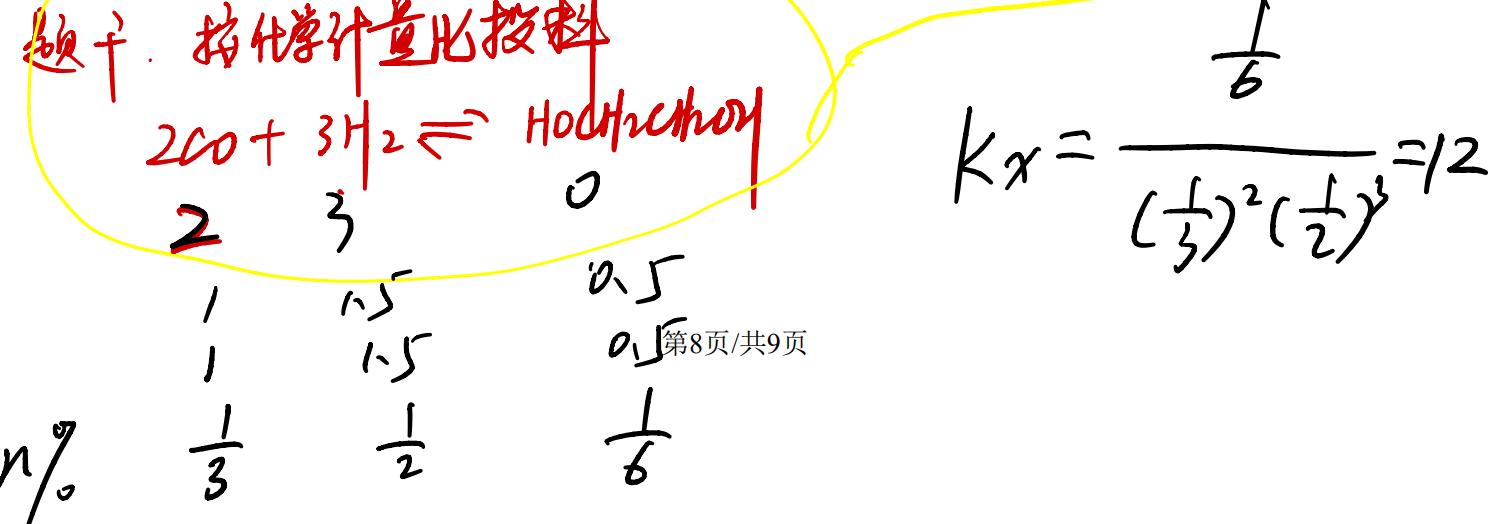 题干. 按化学计量比投料
2CO + 3H₂ ⇌ HOCH₂CH₂OH
2 3 0
1 1.5 0.5
1 1.5 0.5
第8页/共9页
n% 1/3 1/2 1/6
Kx = (1/6)/((1/3)²(1/2)³) = 12